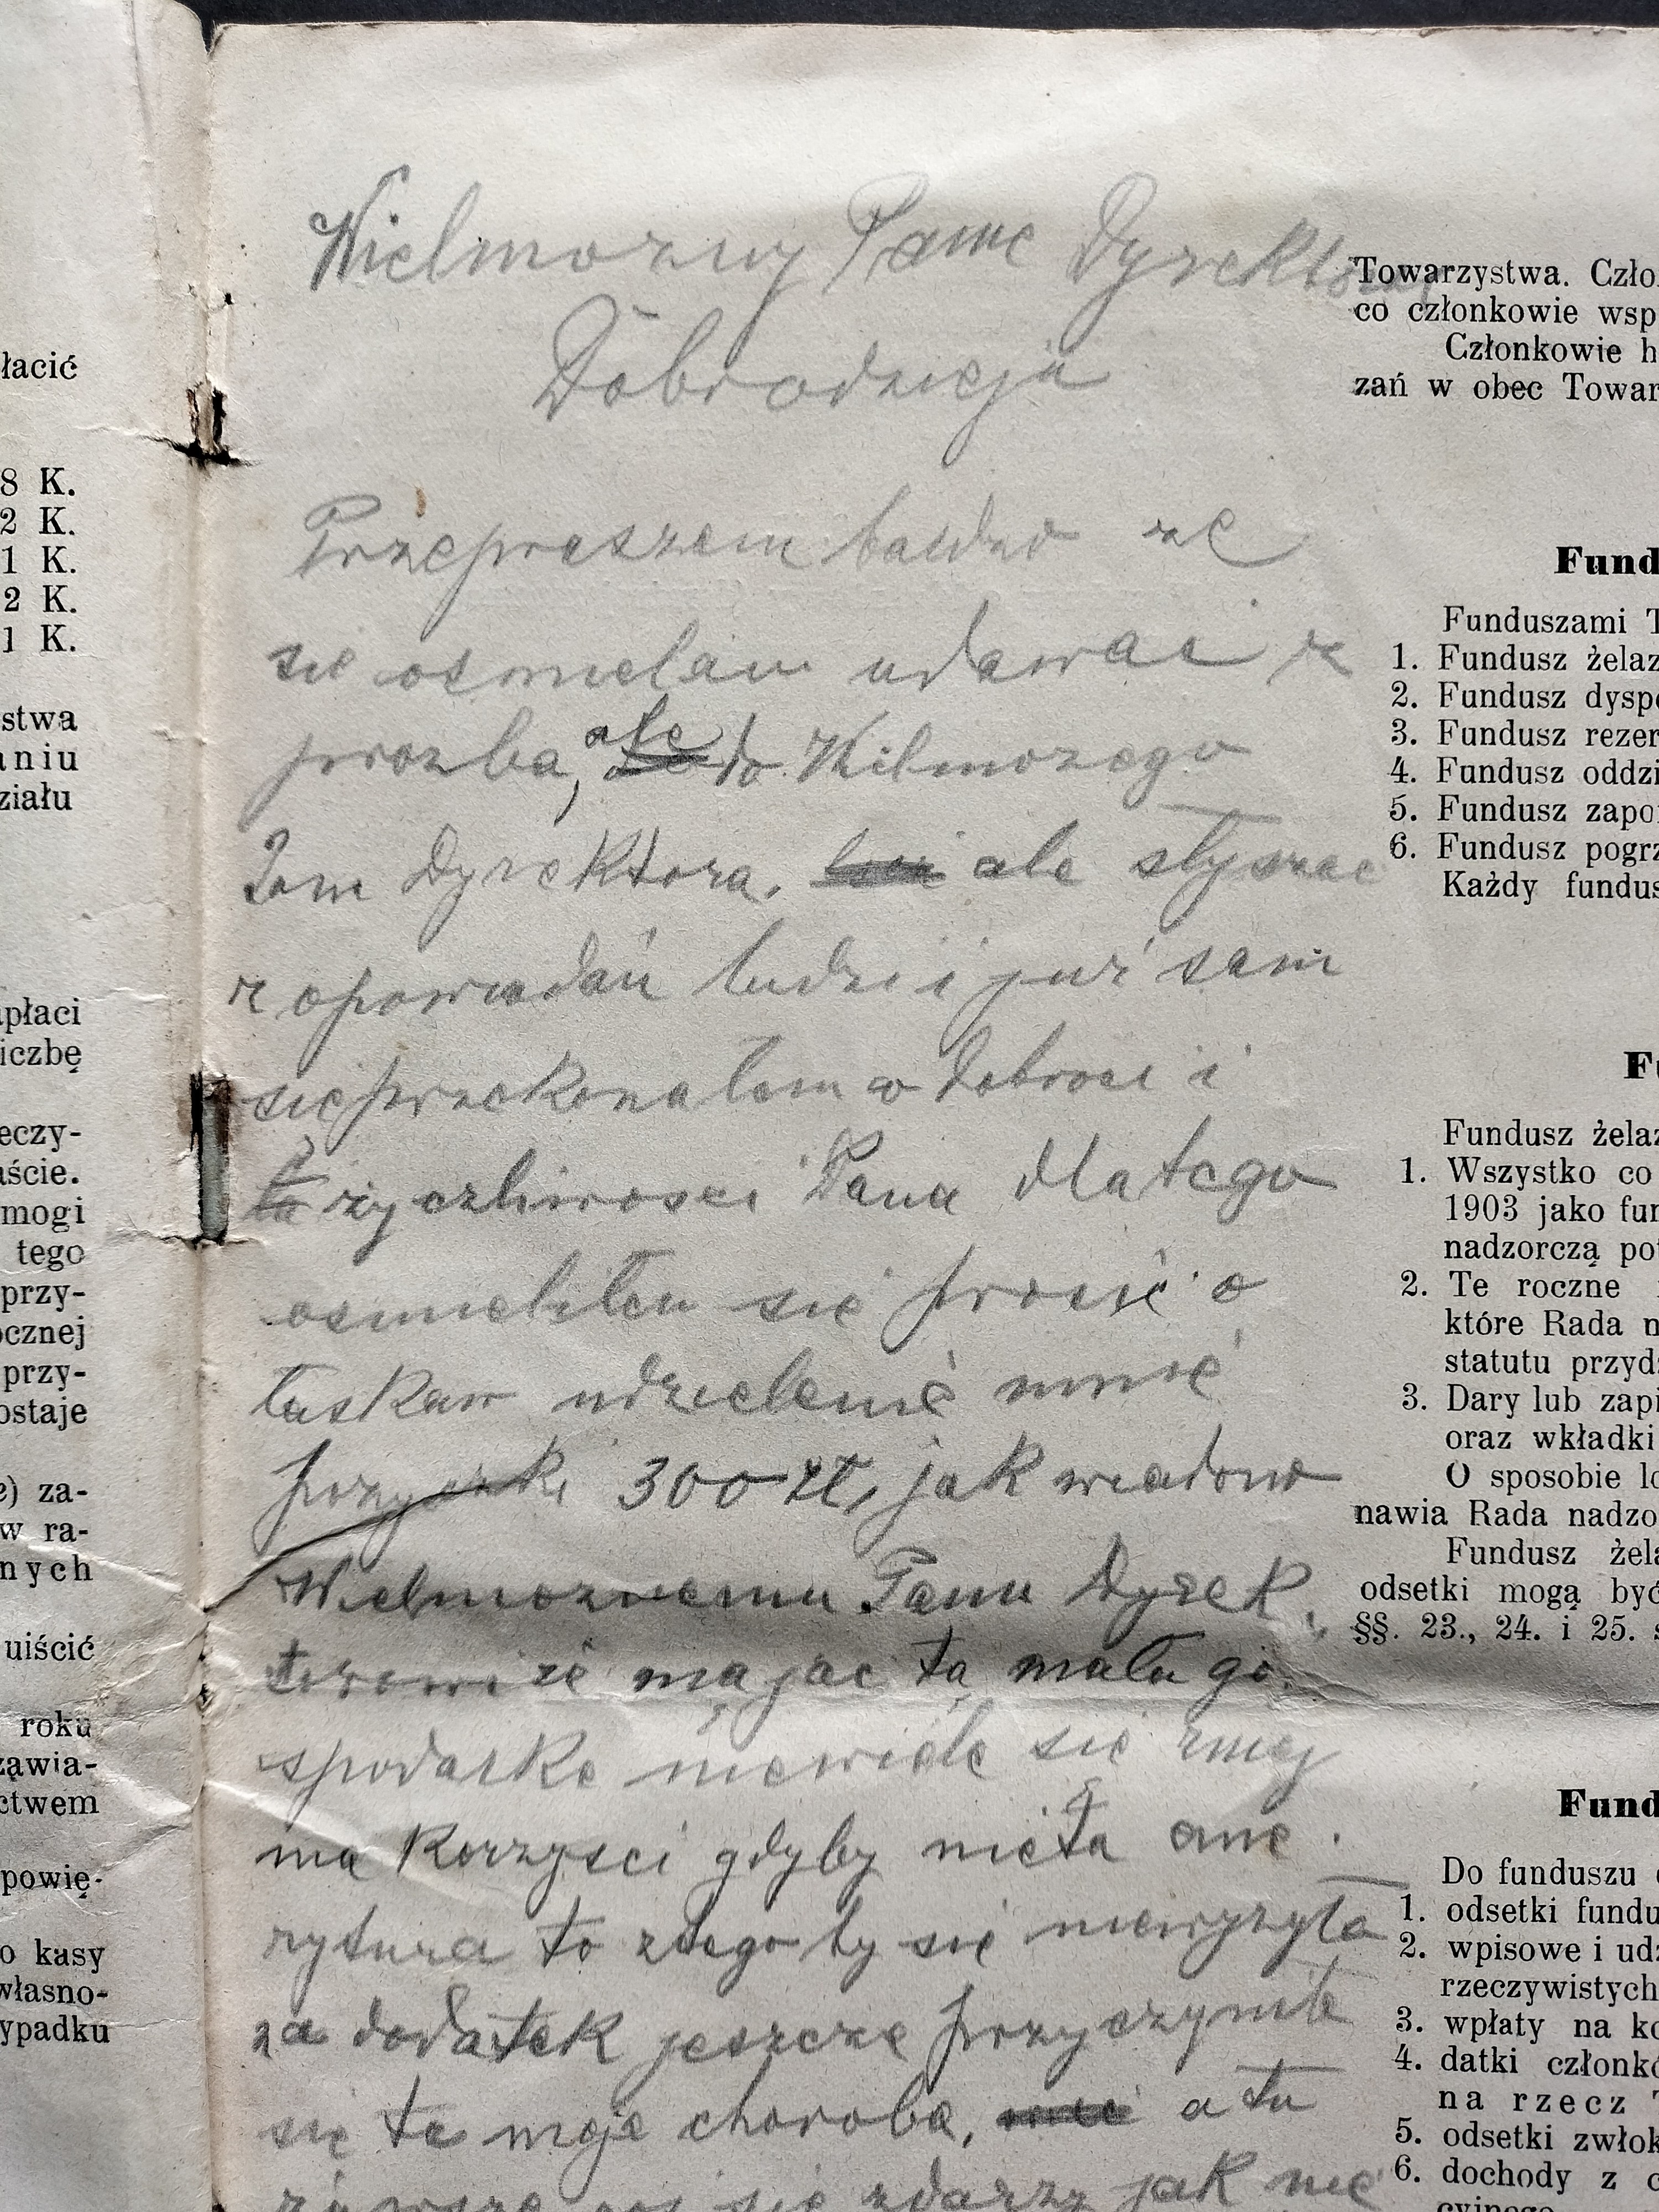 łacić
8 K.
2 K.
1 K.
2 K.
1 K.
stwa
aniu
ziału
apłaci
iczbę
eczy-
aście.
mogi
tego
przy-
ocznej
przy-
ostaje
e) za-
w ra-
nych
uiścić
roku
ząwia-
ctwem
powię-
o kasy
własno-
ypadku
Wielmozny Panie Dyrektorze
Dobrodzieju
Przepraszem bardzo ze
sie osmielam udawac z
prozba, ale do Wilmozego
Pana Dyrektora. ale słyszac
z opowiadań ludzi i już sam
sie przekonałem w dobroci i
życzliwosci Pana dlatego
osmieliłem sie prosić o
łaskaw udzielenie mnie
pozyczki 300 zł, jak wiadomo
Wielmoznemu Panu Dyrek
torowi że mając tą małą go
spodarke niewiele się zniej
ma korzysci gdyby nieta eme
rytura to ztego by się niewyżyło
na dodatek jeszcze przyczyniła
się ta moja choroba, a tu
zawsze cos sie zdarzy jak nie
Towarzystwa. Czło
co członkowie wsp
Członkowie h
zań w obec Towar
Fund
Funduszami T
1. Fundusz żelaz
2. Fundusz dyspo
3. Fundusz rezer
4. Fundusz oddzi
5. Fundusz zapo
6. Fundusz pogrz
Każdy fundus
Fu
Fundusz żelaz
1. Wszystko co
1903 jako fun
nadzorczą pot
2. Te roczne
które Rada n
statutu przydz
3. Dary lub zapi
oraz wkładki
O sposobie lo
nawia Rada nadzo
Fundusz żela
odsetki mogą być
§§. 23., 24. i 25. s
Fund
Do funduszu
1. odsetki fundu
2. wpisowe i udz
rzeczywistych
3. wpłaty na ko
4. datki członkó
na rzecz T
5. odsetki zwłok
6. dochody z c
cyjnego